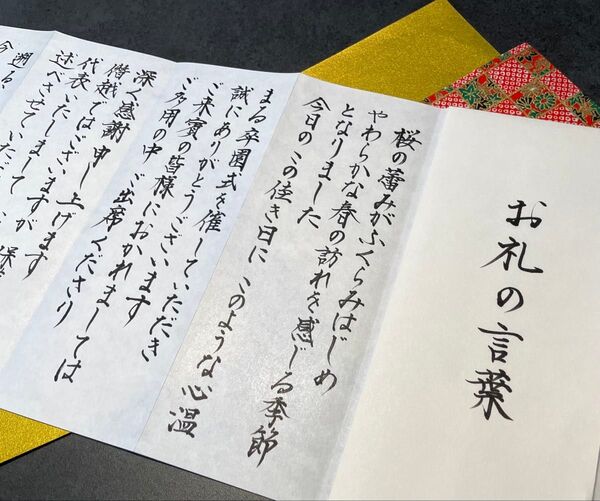 お礼の言葉
桜の蕾みがふくらみはじめ
やわらかな春の訪れを感じる季節
となりました
今日のこの佳き日に このような心温
まる卒園式を催していただき
誠にありがとうございます
ご来賓の皆様におかれましては
ご多用の中 ご出席くださり
深く感謝申し上げます
僭越ではございますが
代表いたしまして
述べさせていただ